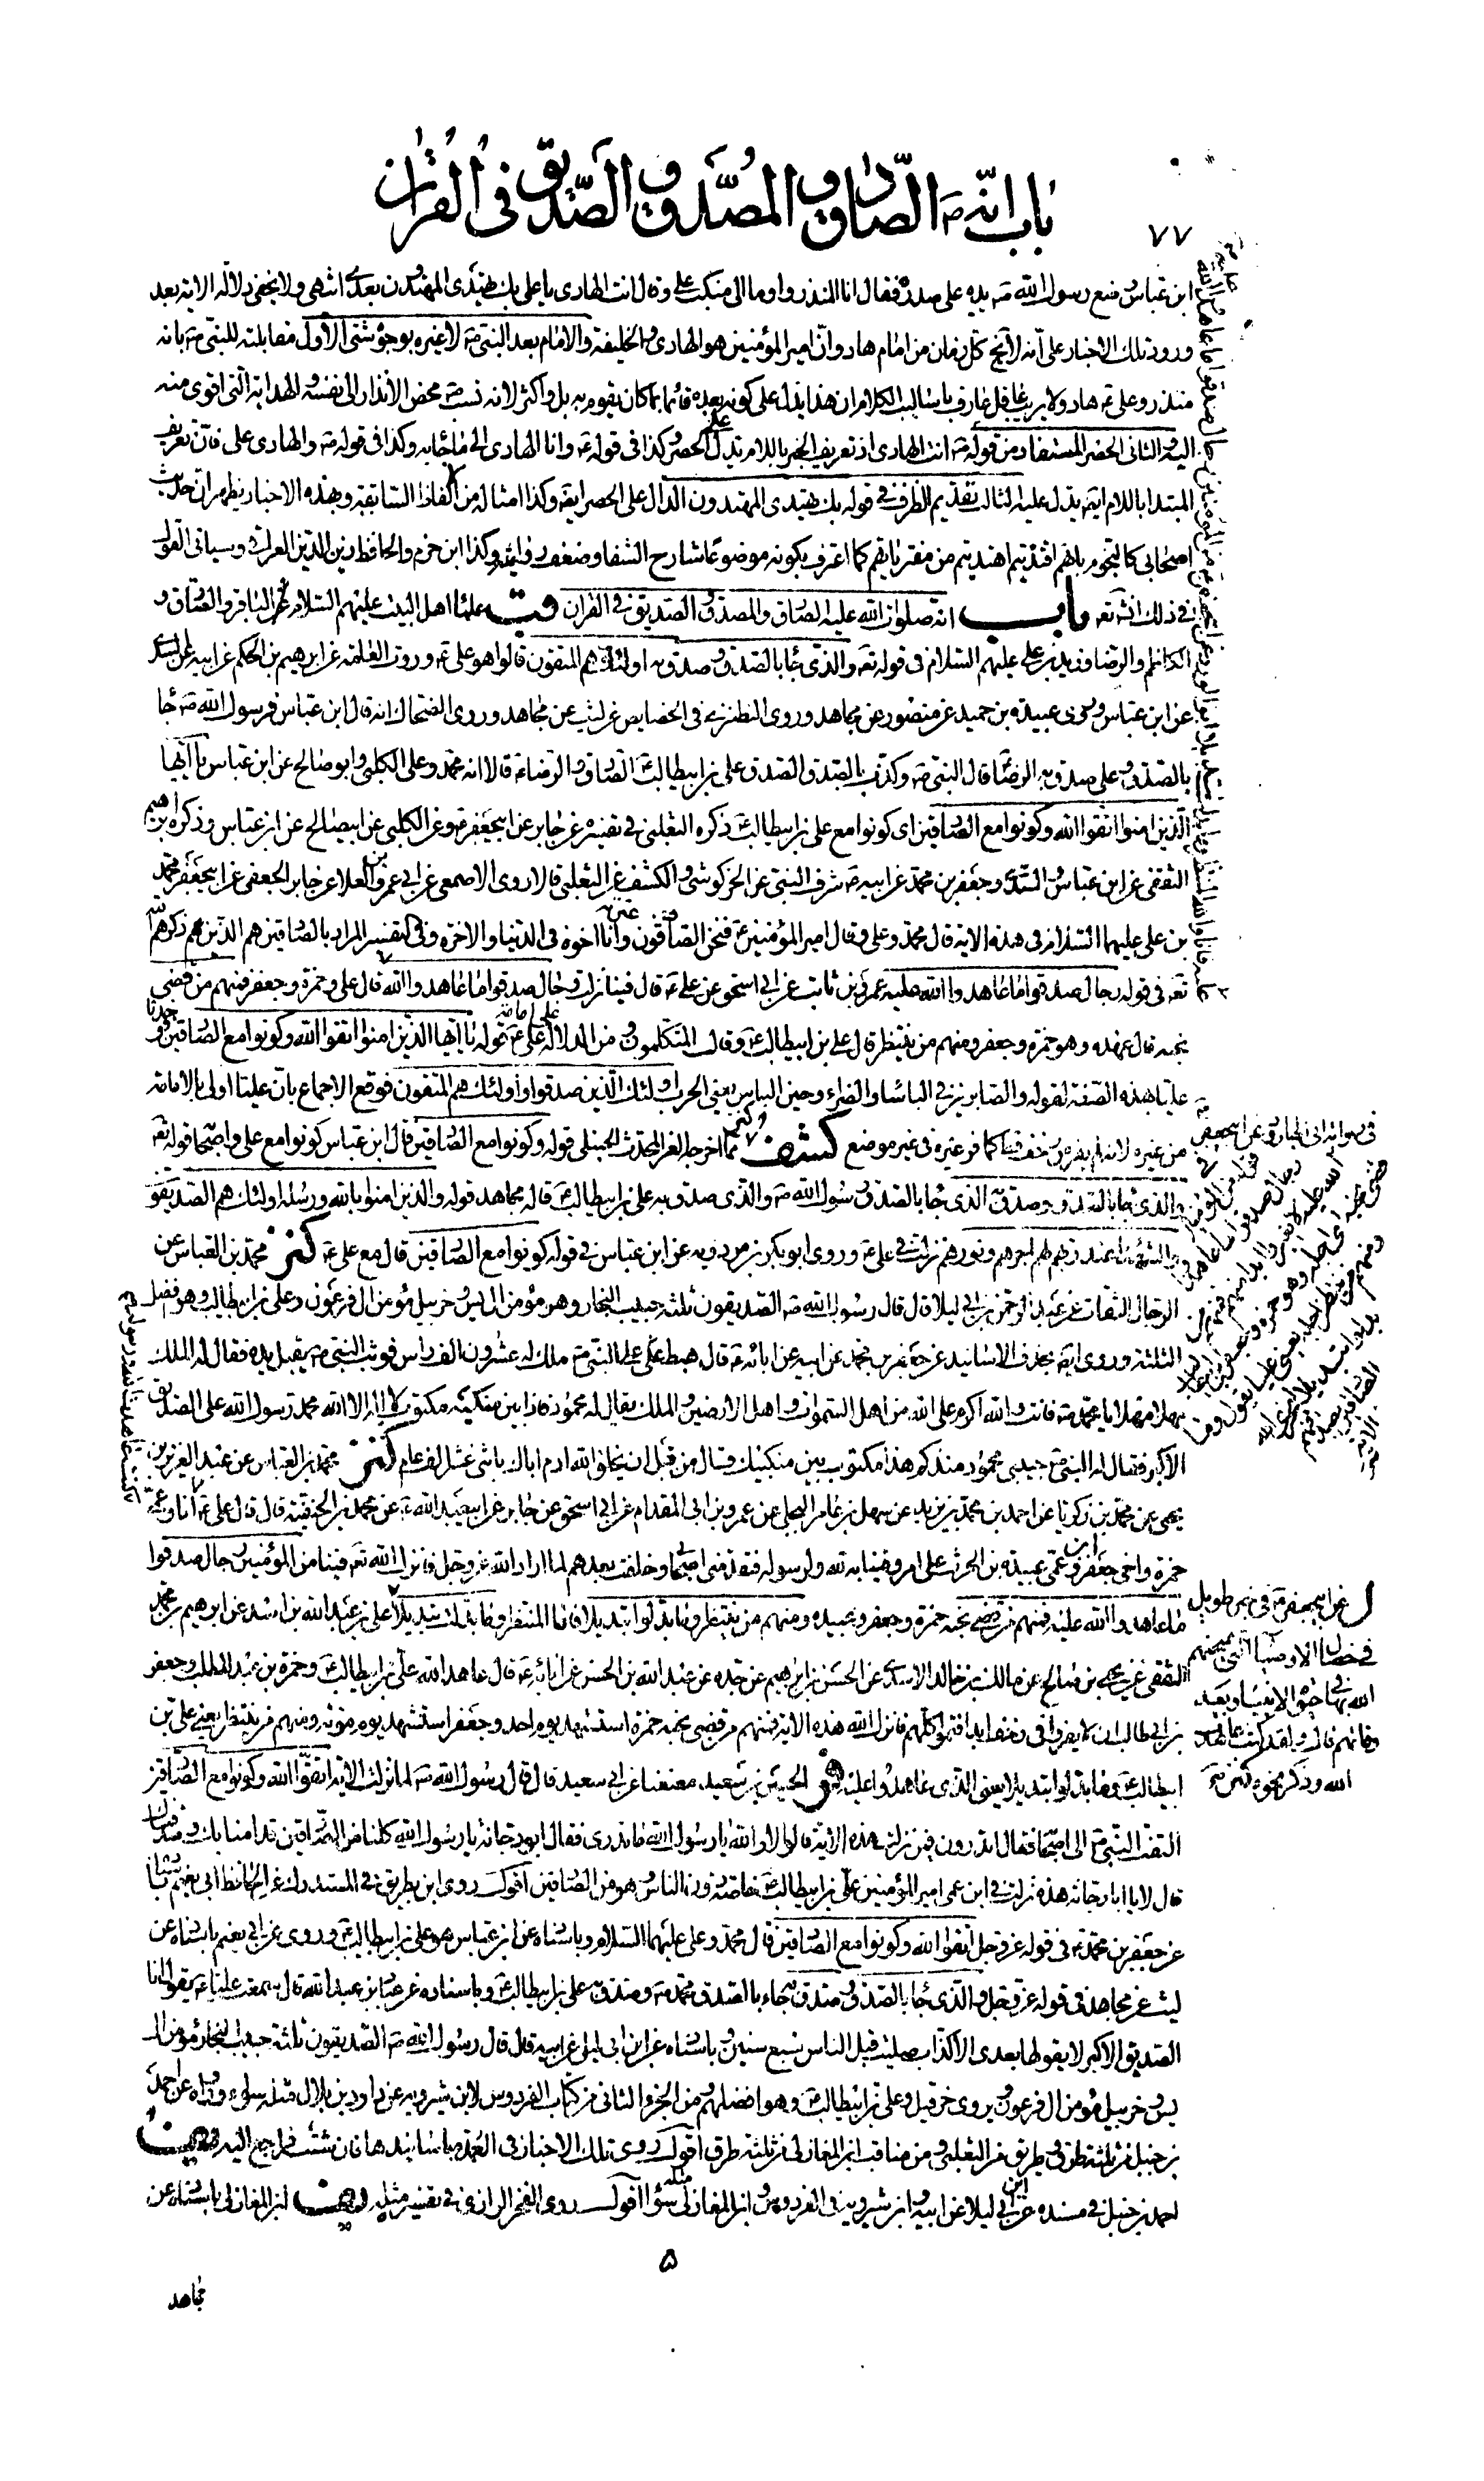 باب انه ص الصادق و المصدق و الصديق فى القرآن
٧٧
ابن عباس وضع رسول الله ص يده على صدره فقال انا المنذر و اوما الى منكب على و قال انت الهادى يا على بك يهتدى المهتدون بعدى انتهى و لا يخفى دلالة الاية بعد
ورود تلك الاخبار على انه لا يخ كل زمان من امام هاد و ان امير المؤمنين هو الهادى و الخليفة و الامام بعد النبى ص لا غيره بوجوه شتى الاول مقابلته للنبى ص بانه
منذر و على ع هاد و لا يريب عاقل عارف باساليب الكلام ان هذا يدل على كونه بعده قائما بما كان يقوم به بل و اكثر لانه نسب ص محض الانذار الى نفسه و الهداية التى اقوى منه
اليه الثانى الحصر المستفاد من قوله ص انت الهادى اذ تعريف الخبر باللام يدل على الحصر و كذا فى قوله ع و انا الهادى الى ما جاء به و كذا فى قوله ص و الهادى على فان تعريف
المبتدا باللام ايضا يدل عليه الثالث تقديم الظرف فى قوله بك يهتدى المهتدون الدال على الحصر ايضا و كذا امثاله من الالفاظ السابقة و بهذه الاخبار يظهر ان حديث
اصحابى كالنجوم بايهم اقتديتم اهتديتم من مفترياتهم كما اعترف بكونه موضوعا شارح الشفا و ضعف رواته و كذا ابن حزم و الحافظ زين الدين العراقى و سياتى القول
فى ذلك انش تعه باب انه صلوات الله عليه الصادق و المصدق و الصديق فى القرآن قب علماء اهل البيت عليهم السلام الباقر و الصادق و
الكاظم و الرضا و زيد بن على عليهم السلام فى قوله تعه و الذى جاء بالصدق و صدق به اولئك هم المتقون قالوا هو على ع و روت العامة عن ابرهيم بن الحكم عن ابيه عن السدى
عن ابن عباس و روى عبيدة بن حميد عن منصور عن مجاهد و روى النطنزى فى الخصايص عن ليث عن مجاهد و روى الضحاك انه قال ابن عباس فرسول الله ص جاء
بالصدق و على صدق به الرضا قال النبى ص و كذب بالصدق الصدق على بن ابيطالب ع الصادق و الرضا ع قالا انه محمد و على الكلبى و ابو صالح عن ابن عباس يا ايها
الذين امنوا اتقوا الله و كونوا مع الصادقين اى كونوا مع على بن ابيطالب ع ذكره الثعلبى فى تفسيره عن جابر عن ابيجعفر ع و عن الكلبى عن ابيصالح عن ابن عباس و ذكره ابرهيم
الثقفى عن ابن عباس و السدى و جعفر بن محمد عن ابيه ع شرف النبى عن الخركوشى و الكشف عن الثعلبى قالا روى الاصمعى عن ابى عمرو بن العلا عن جابر الجعفى عن ابيجعفر محمد
بن على عليهما السلام فى هذه الاية قال محمد و على و قال امير المؤمنين ع فنحن الصادقون عترته و انا اخوه فى الدنيا و الاخرة و فى التفسير المراد بالصادقين هم الذين هم ذكرهم الله
تعه فى قوله رجال صدقوا ما عاهدوا الله عليه عمرو بن ثابت عن ابى اسحق عن على ع قال فينا نزلت رجال صدقوا ما عاهدوا الله قال على و حمزة و جعفر فمنهم من قضى
نحبه قال عهده و هو حمزة و جعفر و منهم من ينتظر قال على بن ابيطالب ع و قال المتكلمون و من الدلالة على امامة على ع قوله يا ايها الذين امنوا اتقوا الله و كونوا مع الصادقين فوجدنا
عليا بهذه الصفة لقوله و الصابرين فى الباساء و الضراء و حين الباس يعنى الحرب اولئك الذين صدقوا و اولئك هم المتقون فوقع الاجماع بان عليا اولى بالامامة
من غيره لانه لم يفر من زحف قط كما فر غيره فى غير موضع كشف مما اخرجه العز المحدث الحنبلى قوله و كونوا مع الصادقين قال ابن عباس كونوا مع على و اصحابه قوله تعه
و الذى جاء بالصدق و صدق به الذى جاء بالصدق رسول الله ص و الذى صدق به على بن ابيطالب ع قاله مجاهد قوله و الذين امنوا بالله و رسله اولئك هم الصديقون
و الشهداء عند ربهم لهم اجرهم و نورهم نزلت فى على ع و روى ابو بكر بن مردويه عن ابن عباس فى قوله كونوا مع الصادقين قال مع على ع كنز محمد بن العباس عن
الرجال الثقات عن عبد الرحمن بن ابى ليلا قال قال رسول الله ص الصديقون ثلثة حبيب النجار و هو مؤمن ال يس و خربيل مؤمن ال فرعون و على بن ابيطالب و هو افضل
الثلثة و روى ايضا بحذف الاسانيد عن جعفر بن محمد عن ابيه عن ابائه ع قال هبط على النبى ص ملك له عشرون الف راس فوثب النبى ص يقبل يده فقال له الملك
مهلا مهلا يا محمد فانت و الله اكرم على الله من اهل السموات و اهل الارضين و الملك يقال له محمود فاذا بين منكبيه مكتوب لا اله الا الله محمد رسول الله على الصديق
الاكبر فقال له النبى ص حبيبى محمود منذ كم هذا مكتوب بين منكبيك قال من قبل ان يخلق الله ادم اباك باثنى عشر الف عام كنز محمد بن العباس عن عبد العزيز بن
يحيى عن محمد بن زكريا عن احمد بن محمد بن يزيد عن سهل بن عامر البجلى عن عمرو بن ابى المقدام عن ابى اسحق عن جابر عن ابيعبد الله ع عن محمد بن الحنفية قال قال على ع انا و عمى
حمزة و اخى جعفر و ابن عمى عبيدة بن الحرث على امر وفينا به لله و لرسوله فتقدمنى اصحابى و خلفت بعدهم لما اراد الله عز و جل فانزل الله تعه فينا من المؤمنين رجال صدقوا
ما عاهدوا الله عليه فمنهم من قضى نحبه حمزة و جعفر و عبيدة و منهم من ينتظر و ما بدلوا تبديلا فانا المنتظر و ما بدلت تبديلا على بن عبد الله بن اسد عن ابرهيم بن محمد
الثقفى عن يحيى بن صالح عن مالك بن خالد الاسدى عن الحسن بن ابرهيم عن جده عن عبد الله بن الحسن عن ابائه ع قال عاهد الله على بن ابيطالب ع و حمزة بن عبد المطلب و جعفر
بن ابى طالب ان لا يفروا فى زحف ابدا فتموا كلهم فانزل الله هذه الاية فمنهم من قضى نحبه حمزة استشهد يوم احد و جعفر استشهد يوم موتة و منهم من ينتظر يعنى على بن
ابيطالب ع و ما بدلوا تبديلا يعنى الذى عاهدوا عليه فر الحسين بن سعيد معنعنا عن ابى سعيد قال قال رسول الله ص لما نزلت الاية اتقوا الله و كونوا مع الصادقين
التفت النبى ص الى اصحابه فقال اتدرون فيمن نزلت هذه الاية قالوا لا و الله يا رسول الله ما ندرى فقال ابو دجانة يا رسول الله كلنا من الصادقين قد امنا بك و صدقناك
قال لا يا ابا دجانة هذه نزلت فى ابن عمى امير المؤمنين على بن ابيطالب ع خاصة دون الناس و هو من الصادقين اقول روى ابن بطريق فى المستدرك عن الحافظ ابى نعيم باسناده
عن جعفر بن محمد ع فى قوله عز و جل اتقوا الله و كونوا مع الصادقين قال محمد و على عليهما السلام و باسناده عن ابن عباس هو على بن ابيطالب ع و روى عن ابى نعيم باسناده عن
ليث عن مجاهد فى قوله عز و جل و الذى جاء بالصدق و صدق به جاء بالصدق محمد ص و صدق به على بن ابيطالب ع و باسناده عن عباد بن عبد الله قال سمعت عليا ع يقول انا
الصديق الاكبر لا يقولها بعدى الا كذاب صليت قبل الناس سبع سنين و باسناده عن ابن ابى ليلى عن ابيه قال قال رسول الله ص الصديقون ثلثة حبيب النجار مؤمن ال
يس و خربيل مؤمن ال فرعون و يروى حزقيل و على بن ابيطالب ع و هو افضلهم و من الجزء الثانى من كتاب الفردوس لابن شيرويه عن داود بن بلال مثله سواء و رواه عن احمد
بن حنبل من ثلثة طرق و طريق من الثعلبى و من مناقب ابن المغازلى من ثلثة طرق اقول روى تلك الاخبار فى العمدة باسانيدها فان شئت فراجع اليه
احمد بن حنبل فى مسنده عن ابن ابى ليلا عن ابيه و ابن شيرويه فى الفردوس و ابن المغازلى مثله سواء اقول روى الفخر الرازى فى تفسيره مثله ابن المغازلى باسناده عن
۵
مجاهد
ل عن ابيجعفر ع فى خبر طويل
فى خصال الاوصياء التى يمتحنهم
الله بها فى حيوة الانبياء و بعد
وفاتهم قال و لقد كنت عاهدت
الله و ذكر نحوه